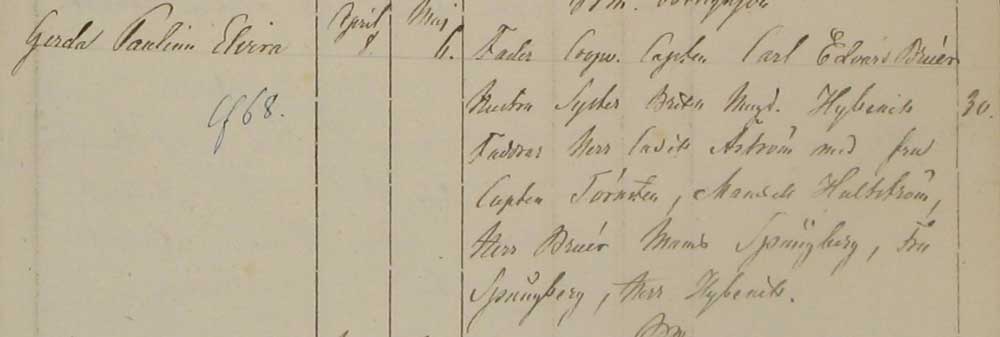 Gerda Paulina Elvira
April 8.
Maj 6.
Fader Coopv. Capten Carl Edvard Bruér
Hustru Syster Brita Magd. Hybenik 30.
Faddrar Herr Åström med fru
Capten Törnsten, Mamsell Hultström,
Herr Bruér Mams Spångberg, Fru
Spångberg, Herr Hybenik.
68.